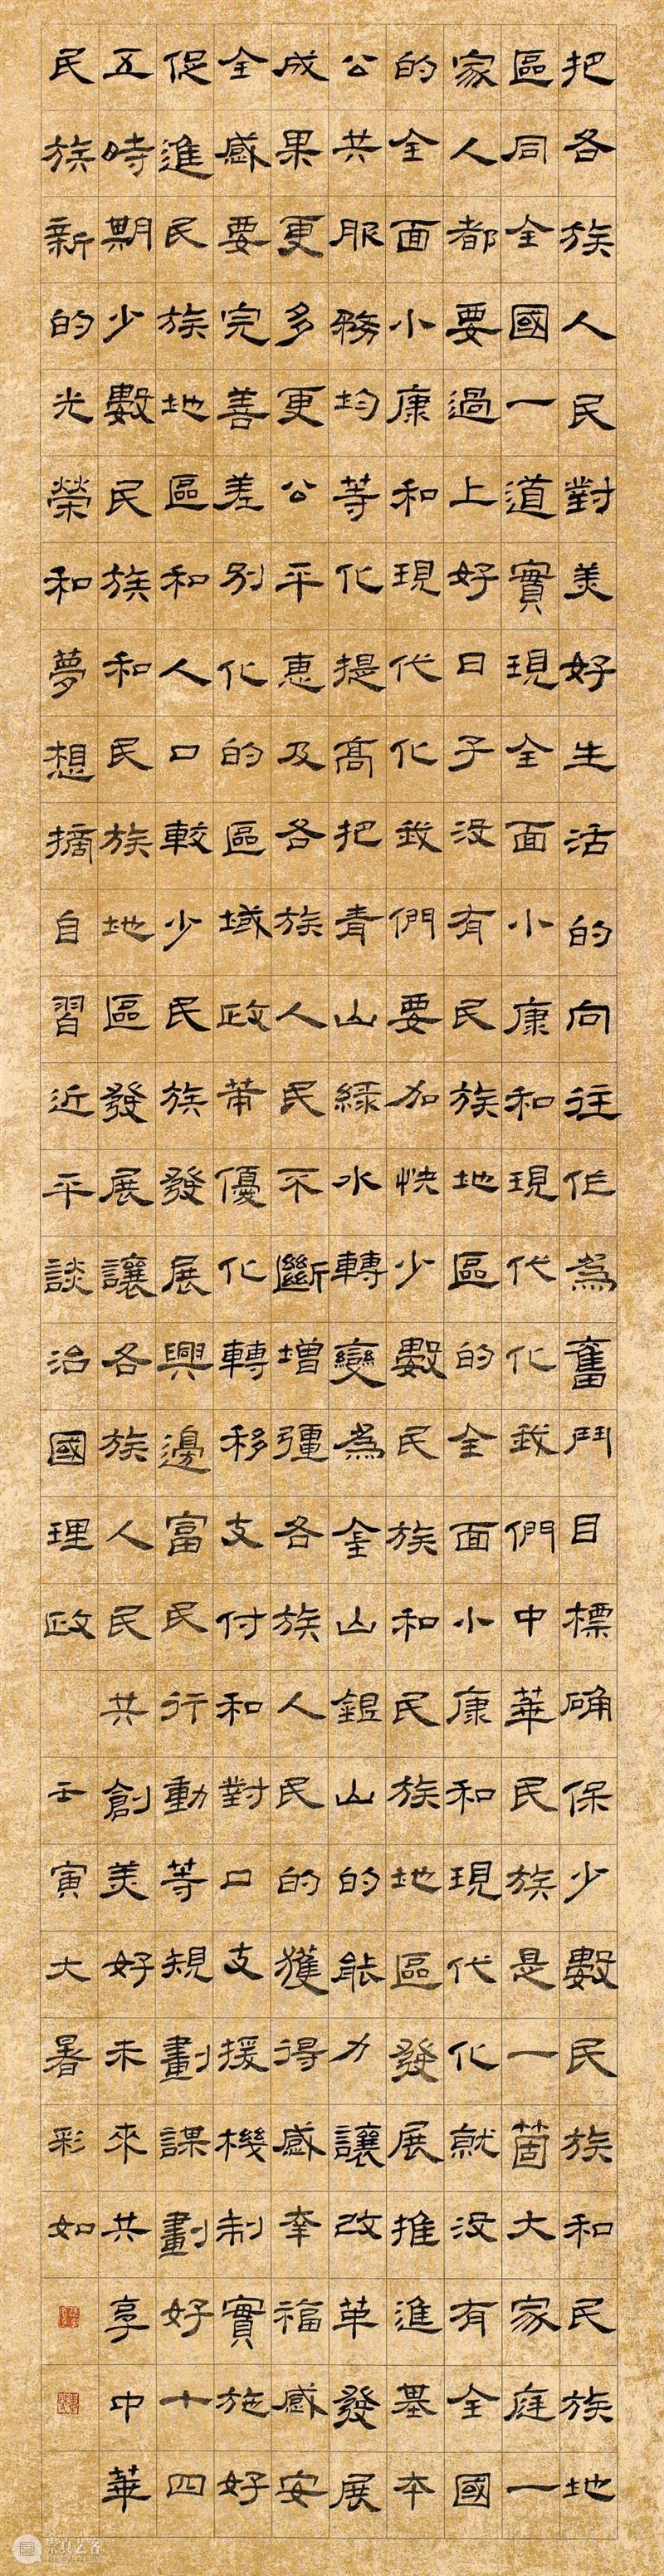 把各族人民對美好生活的向往作為奮鬥目標确保少數民族和民族地
區同全國一道實現全面小康和現代化我們中華民族是一箇大家庭一
家人都要過上好日子沒有民族地區的全面小康和現代化就沒有全國
的全面小康和現代化我們要加快少數民族和民族地區發展推進基本
公共服務均等化提高把青山綠水轉變為金山銀山的能力讓改革發展
成果更多更公平惠及各族人民不斷增彊各族人民的獲得感幸福感安
全感要完善差別化的區域政策優化轉移支付和對口支援機制實施好
促進民族地區和人口較少民族發展興邊富民行動等規劃謀劃好十四
五時期少數民族和民族地區發展讓各族人民共創美好未來共享中華
民族新的光榮和夢想摘自習近平談治國理政 壬寅大暑彩如
崇真艺客